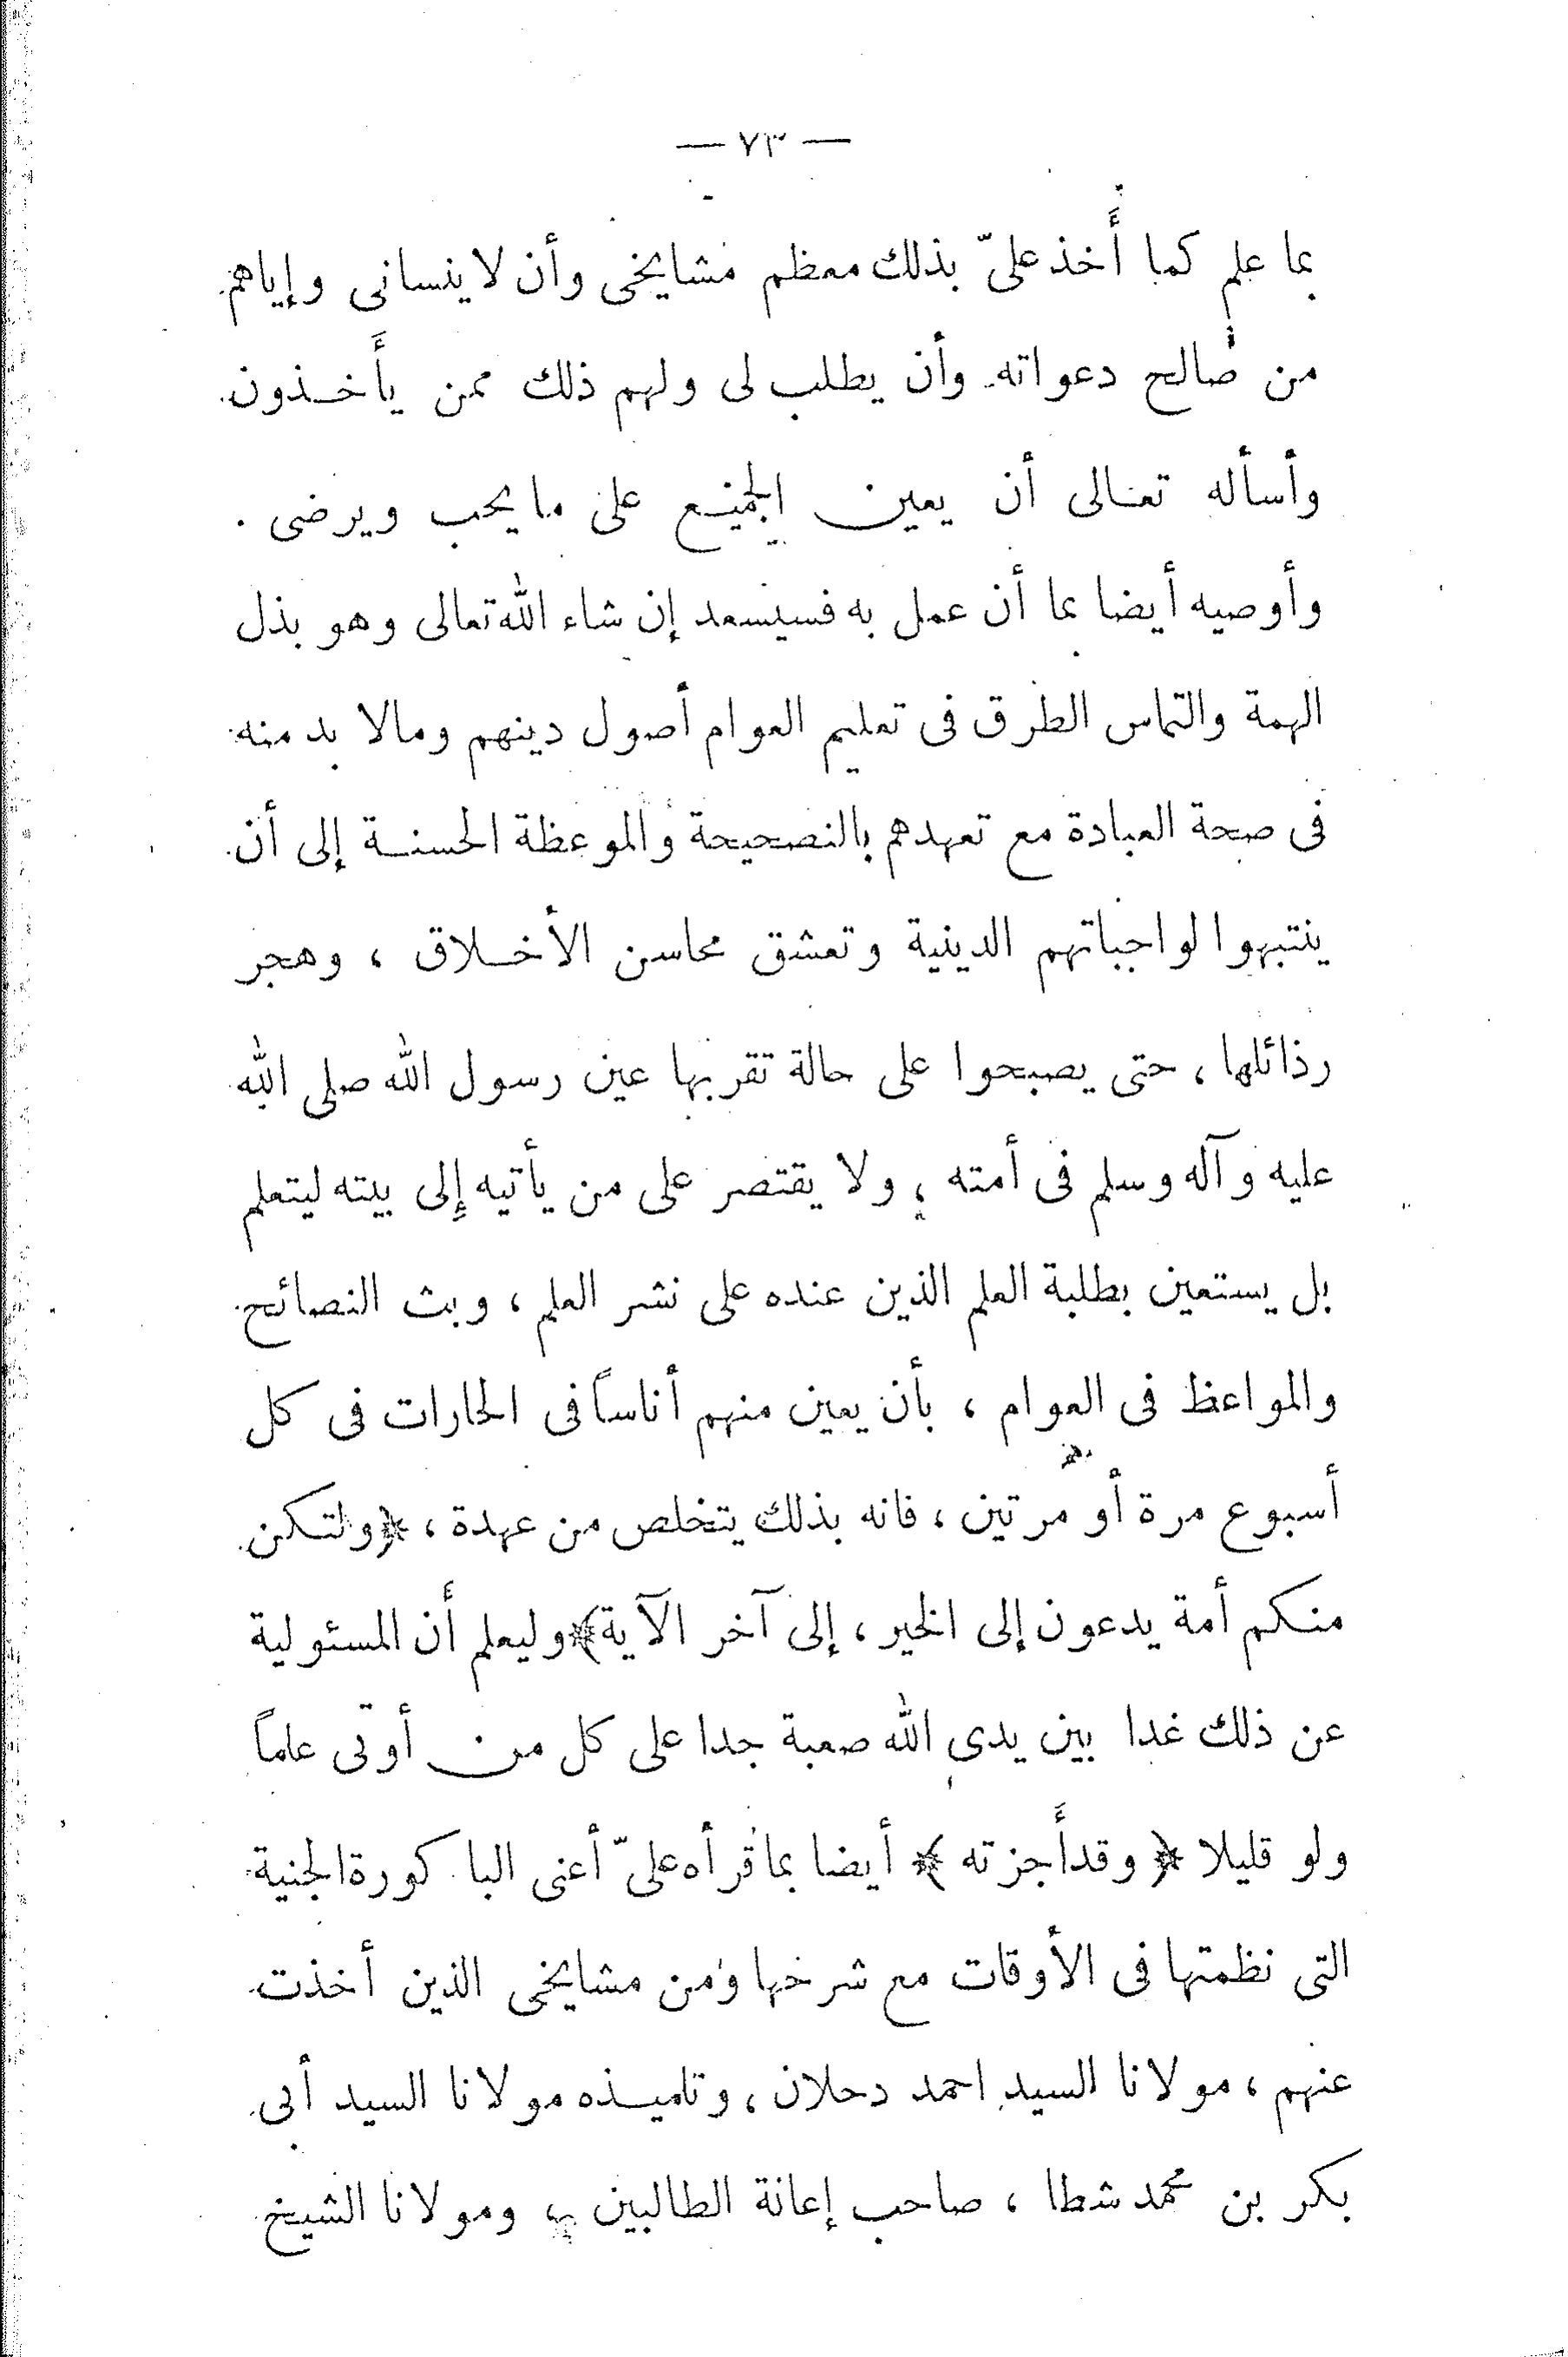 — ٧٣ —
بما علم كما أَخذ علىّ بذلك معظم مشايخى وأن لا ينسانى وإياهم
من صالح دعواته وأن يطلب لى ولهم ذلك ممن يأَخذون
وأسأله تعالى أن يعين الجميع على ما يحب ويرضى .
وأوصيه أيضا بما أن عمل به فسيسعد إن شاء الله تعالى وهو بذل
الهمة والتماس الطرق فى تعليم العوام أصول دينهم ومالا بد منه
فى صحة العبادة مع تعهدهم بالنصحيحة والموعظة الحسنة إلى أن
ينتبهوا لواجباتهم الدينية وتعشق محاسن الأخلاق ، وهجر
رذائلها ، حتى يصبحوا على حالة تقر بها عين رسول الله صلى الله
عليه وآله وسلم فى أمته ، ولا يقتصر على من يأتيه إلى بيته ليتعلم
بل يستعين بطلبة العلم الذين عنده على نشر العلم ، وبث النصائح
والمواعظ فى العوام ، بأن يعين منهم أناساً فى الحارات فى كل
أسبوع مرة أو مرتين ، فانه بذلك يتخلص من عهدة ، ﴿ولتكن
منكم أمة يدعون إلى الخير ، إلى آخر الآية﴾ وليعلم أن المسئولية
عن ذلك غدا بين يدى الله صعبة جدا على كل من أوتى علماً
ولو قليلا ﴿ وقد أَجزته ﴾ أيضا بما قرأه علىّ أعنى الباكورة الجنية
التى نظمتها فى الأوقات مع شرحها ومن مشايخى الذين أخذت
عنهم ، مولانا السيد احمد دحلان ، وتلميذه مولانا السيد أبى
بكر بن محمد شطا ، صاحب إعانة الطالبين ، ومولانا الشيخ